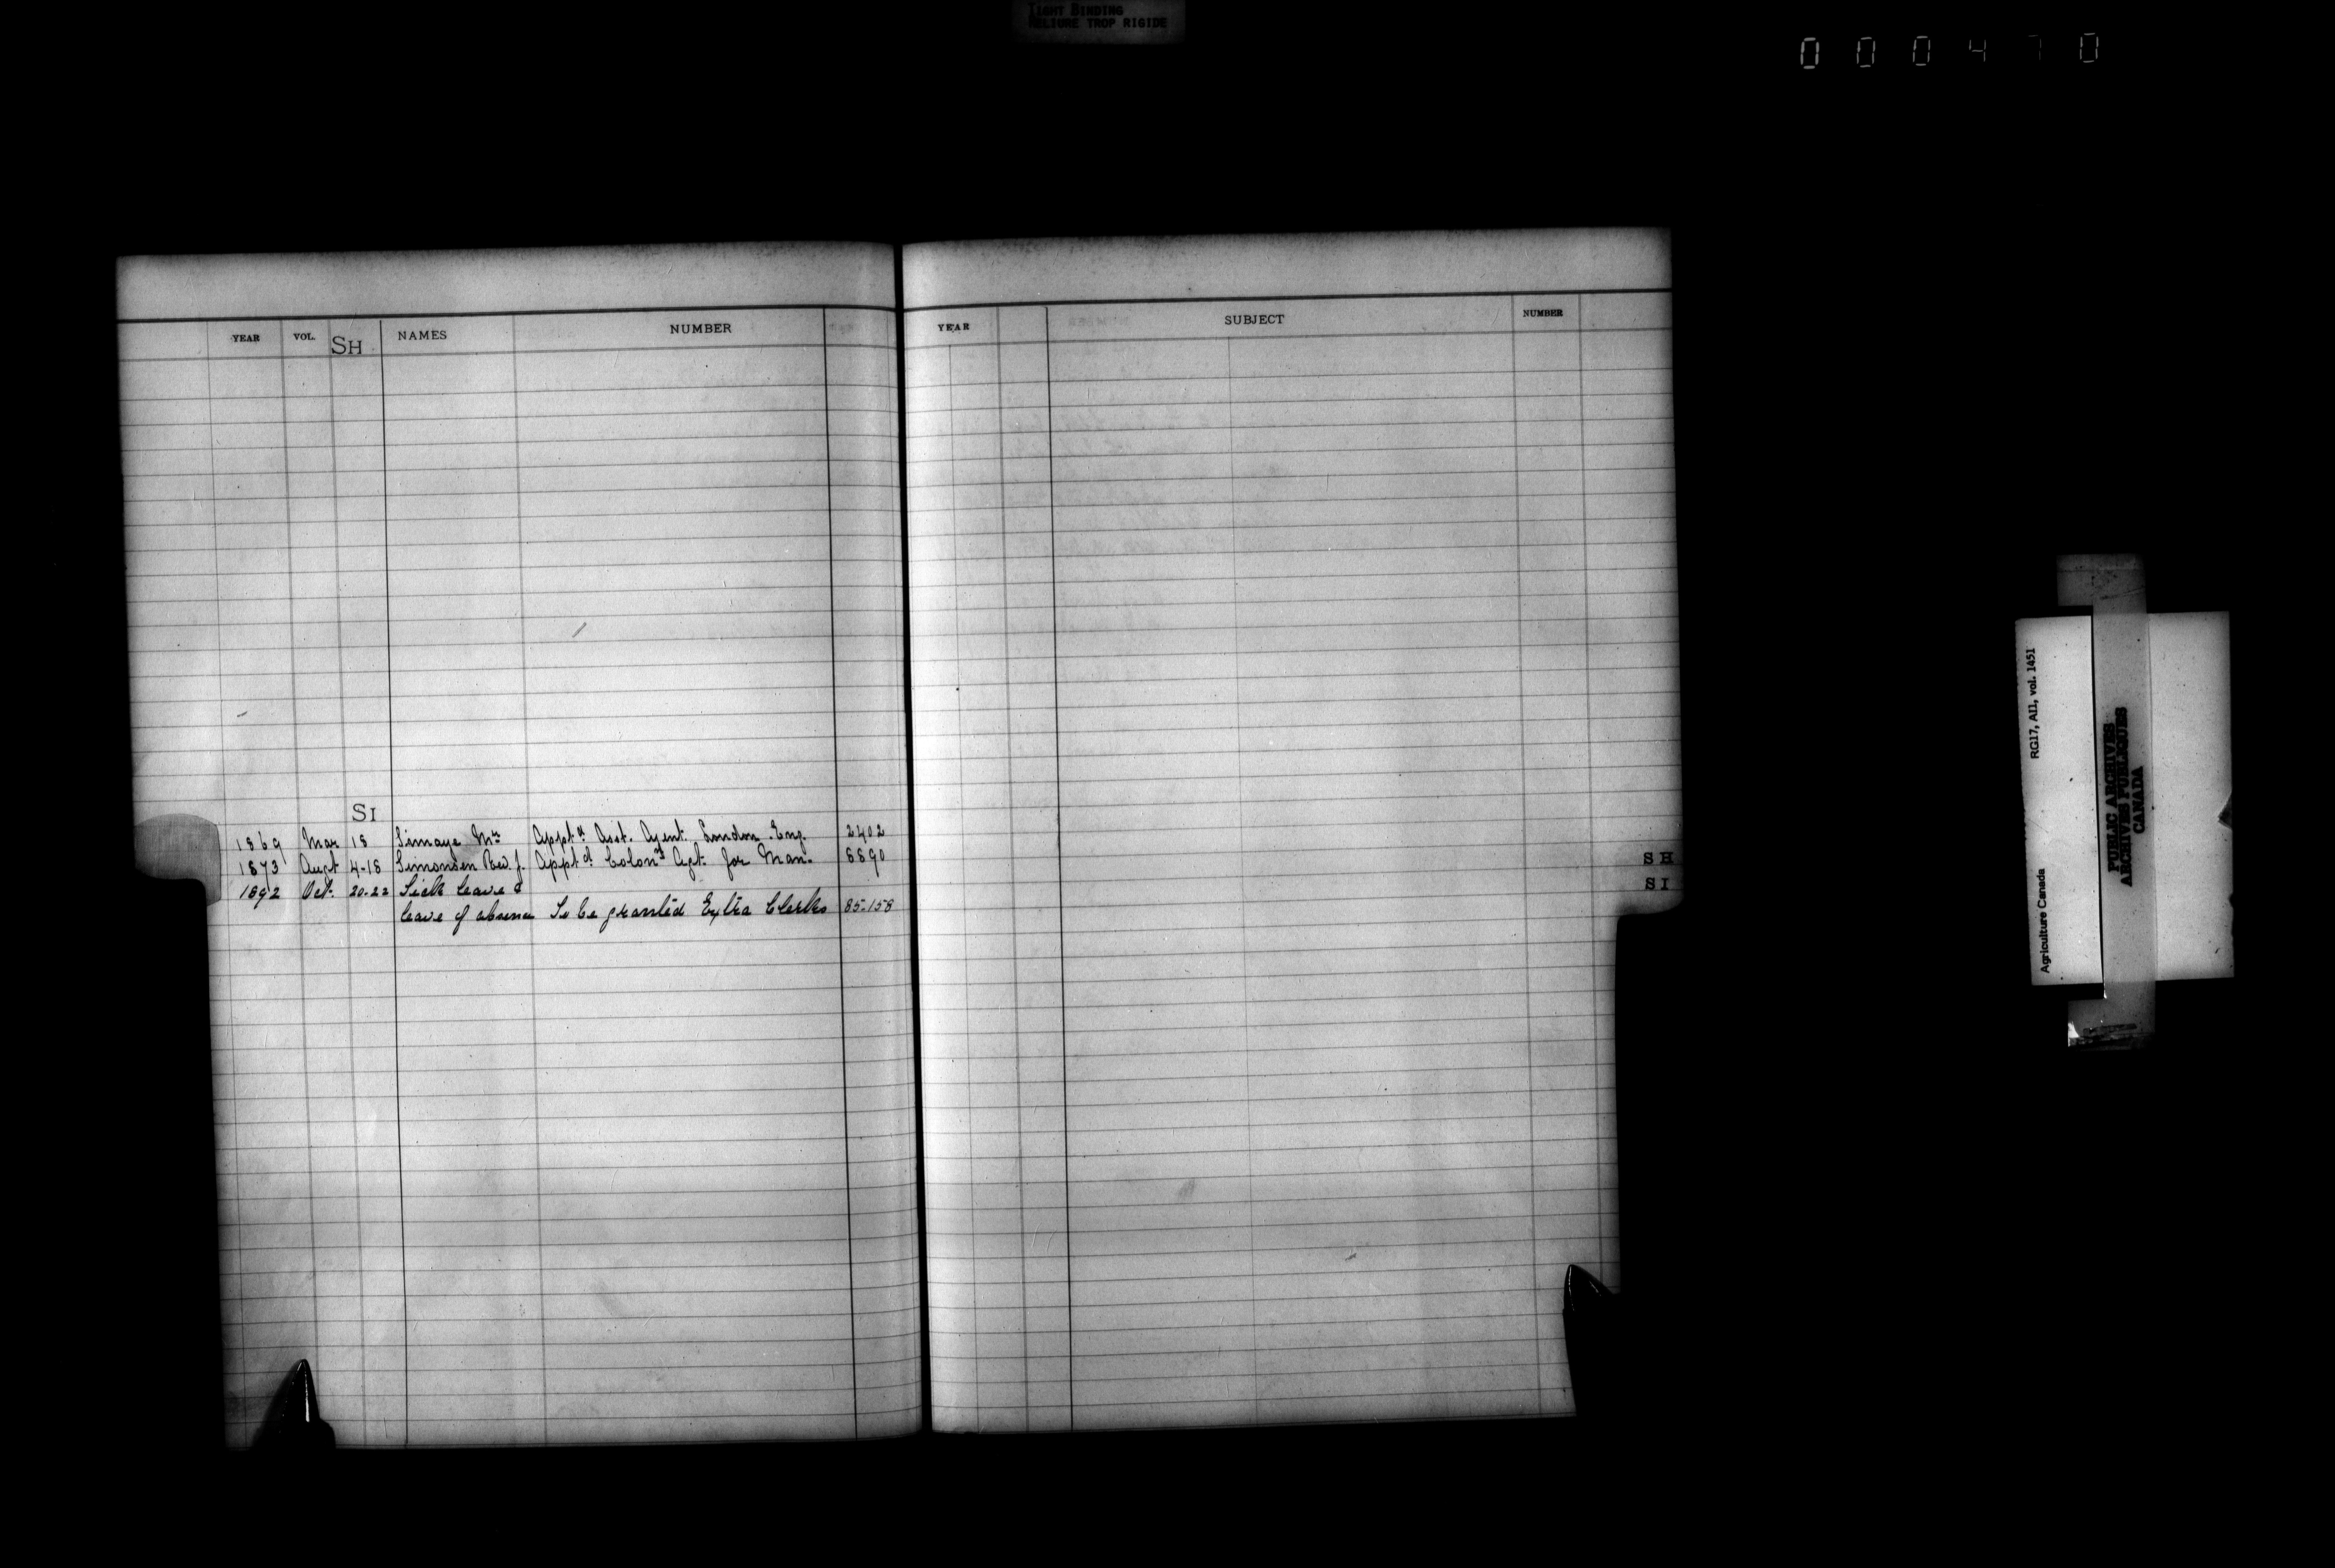 TIGHT BINDING
RELIURE TROP RIGIDE
000470
YEAR VOL. SH NAMES NUMBER
SI
1869 Mar 18 Simaye Mr Apptd Asst. Agent London Eng. 2402
1873 Augt 4-18 Simonsen Rev. J. Apptd Colonn Agt. for Man. 8890
1892 Oct. 20-22 Sick leave &
leave of absence To be granted Extra Clerks 85.158
YEAR SUBJECT NUMBER
SH
SI
Agriculture Canada RG17, AII, vol. 1451
PUBLIC ARCHIVES
ARCHIVES PUBLIQUES
CANADA